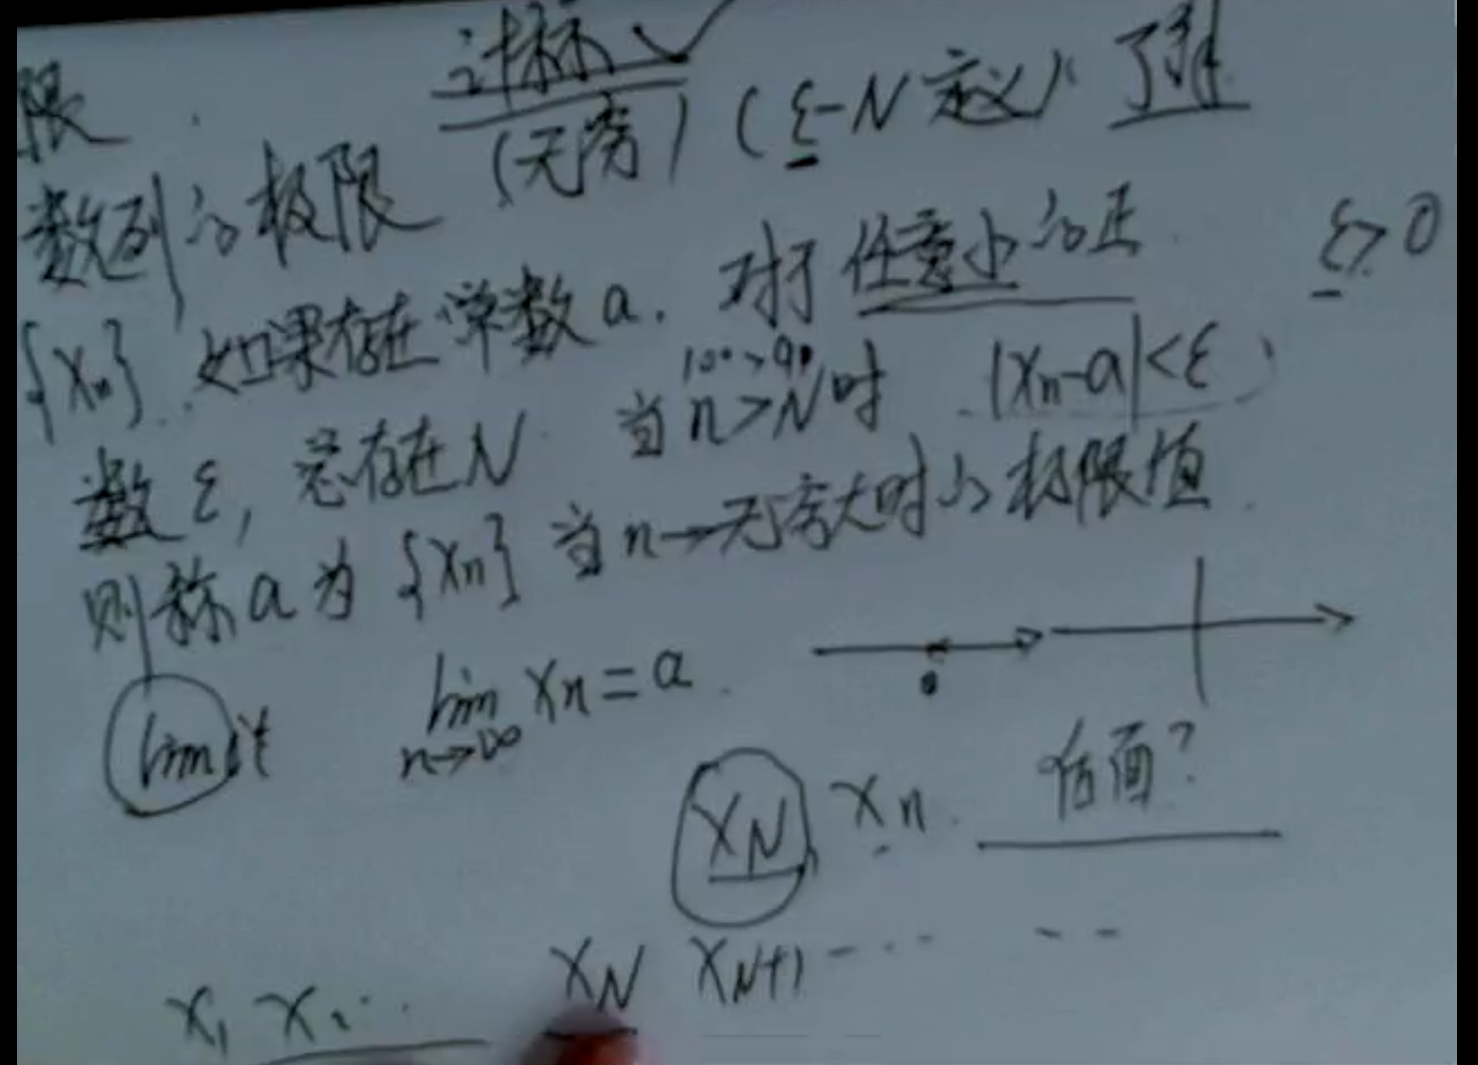 计标
限
(无穷) (ε-N定义) 了解
数列的极限
{xₙ} 如果存在常数a. 对于任意小的正 ε>0
100>90
数ε, 总存在N 当n>N时 |xₙ-a|<ε
则称a为{xₙ}当n→无穷大时的极限值.
limit lim xₙ=a
n→∞
x_N, xₙ. 后面?
x₁ x₂... x_N x_{N+1} ......